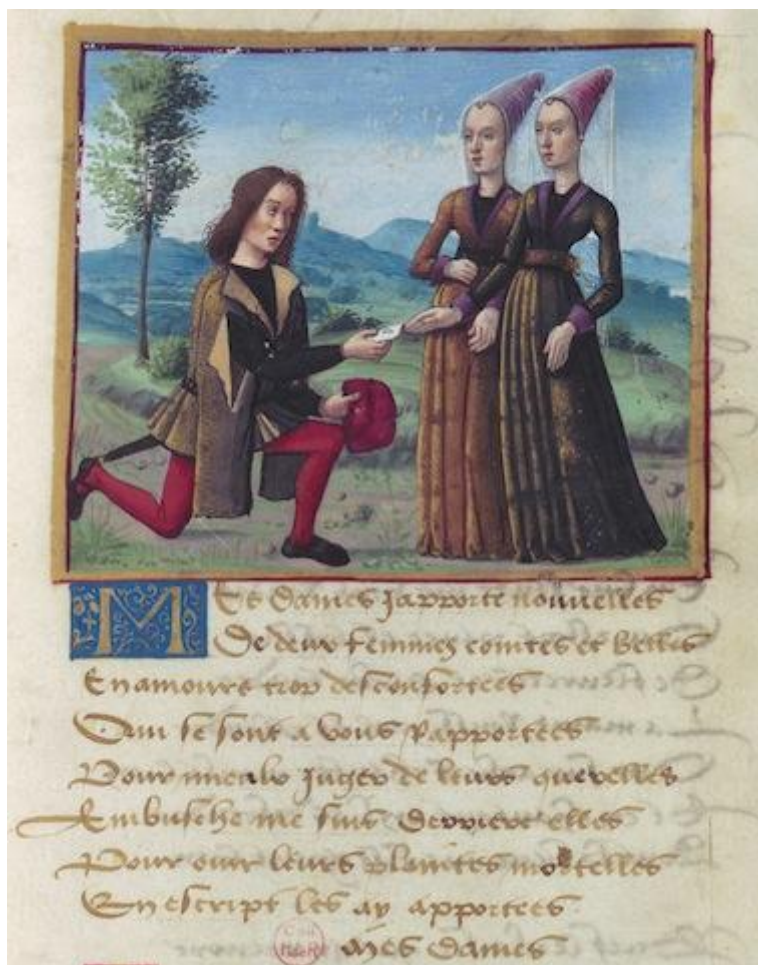 MEs dames J apporte nouuelles
De deux femmes cointes et belles
En amours trop desconfortees
Qui se sont a vous rapportees
Pour mieulx Juger de leurs querelles
Embusche me suis derriere elles
Pour ouir leurs plaintes mortelles
En escript les ay apportees
Mes dames